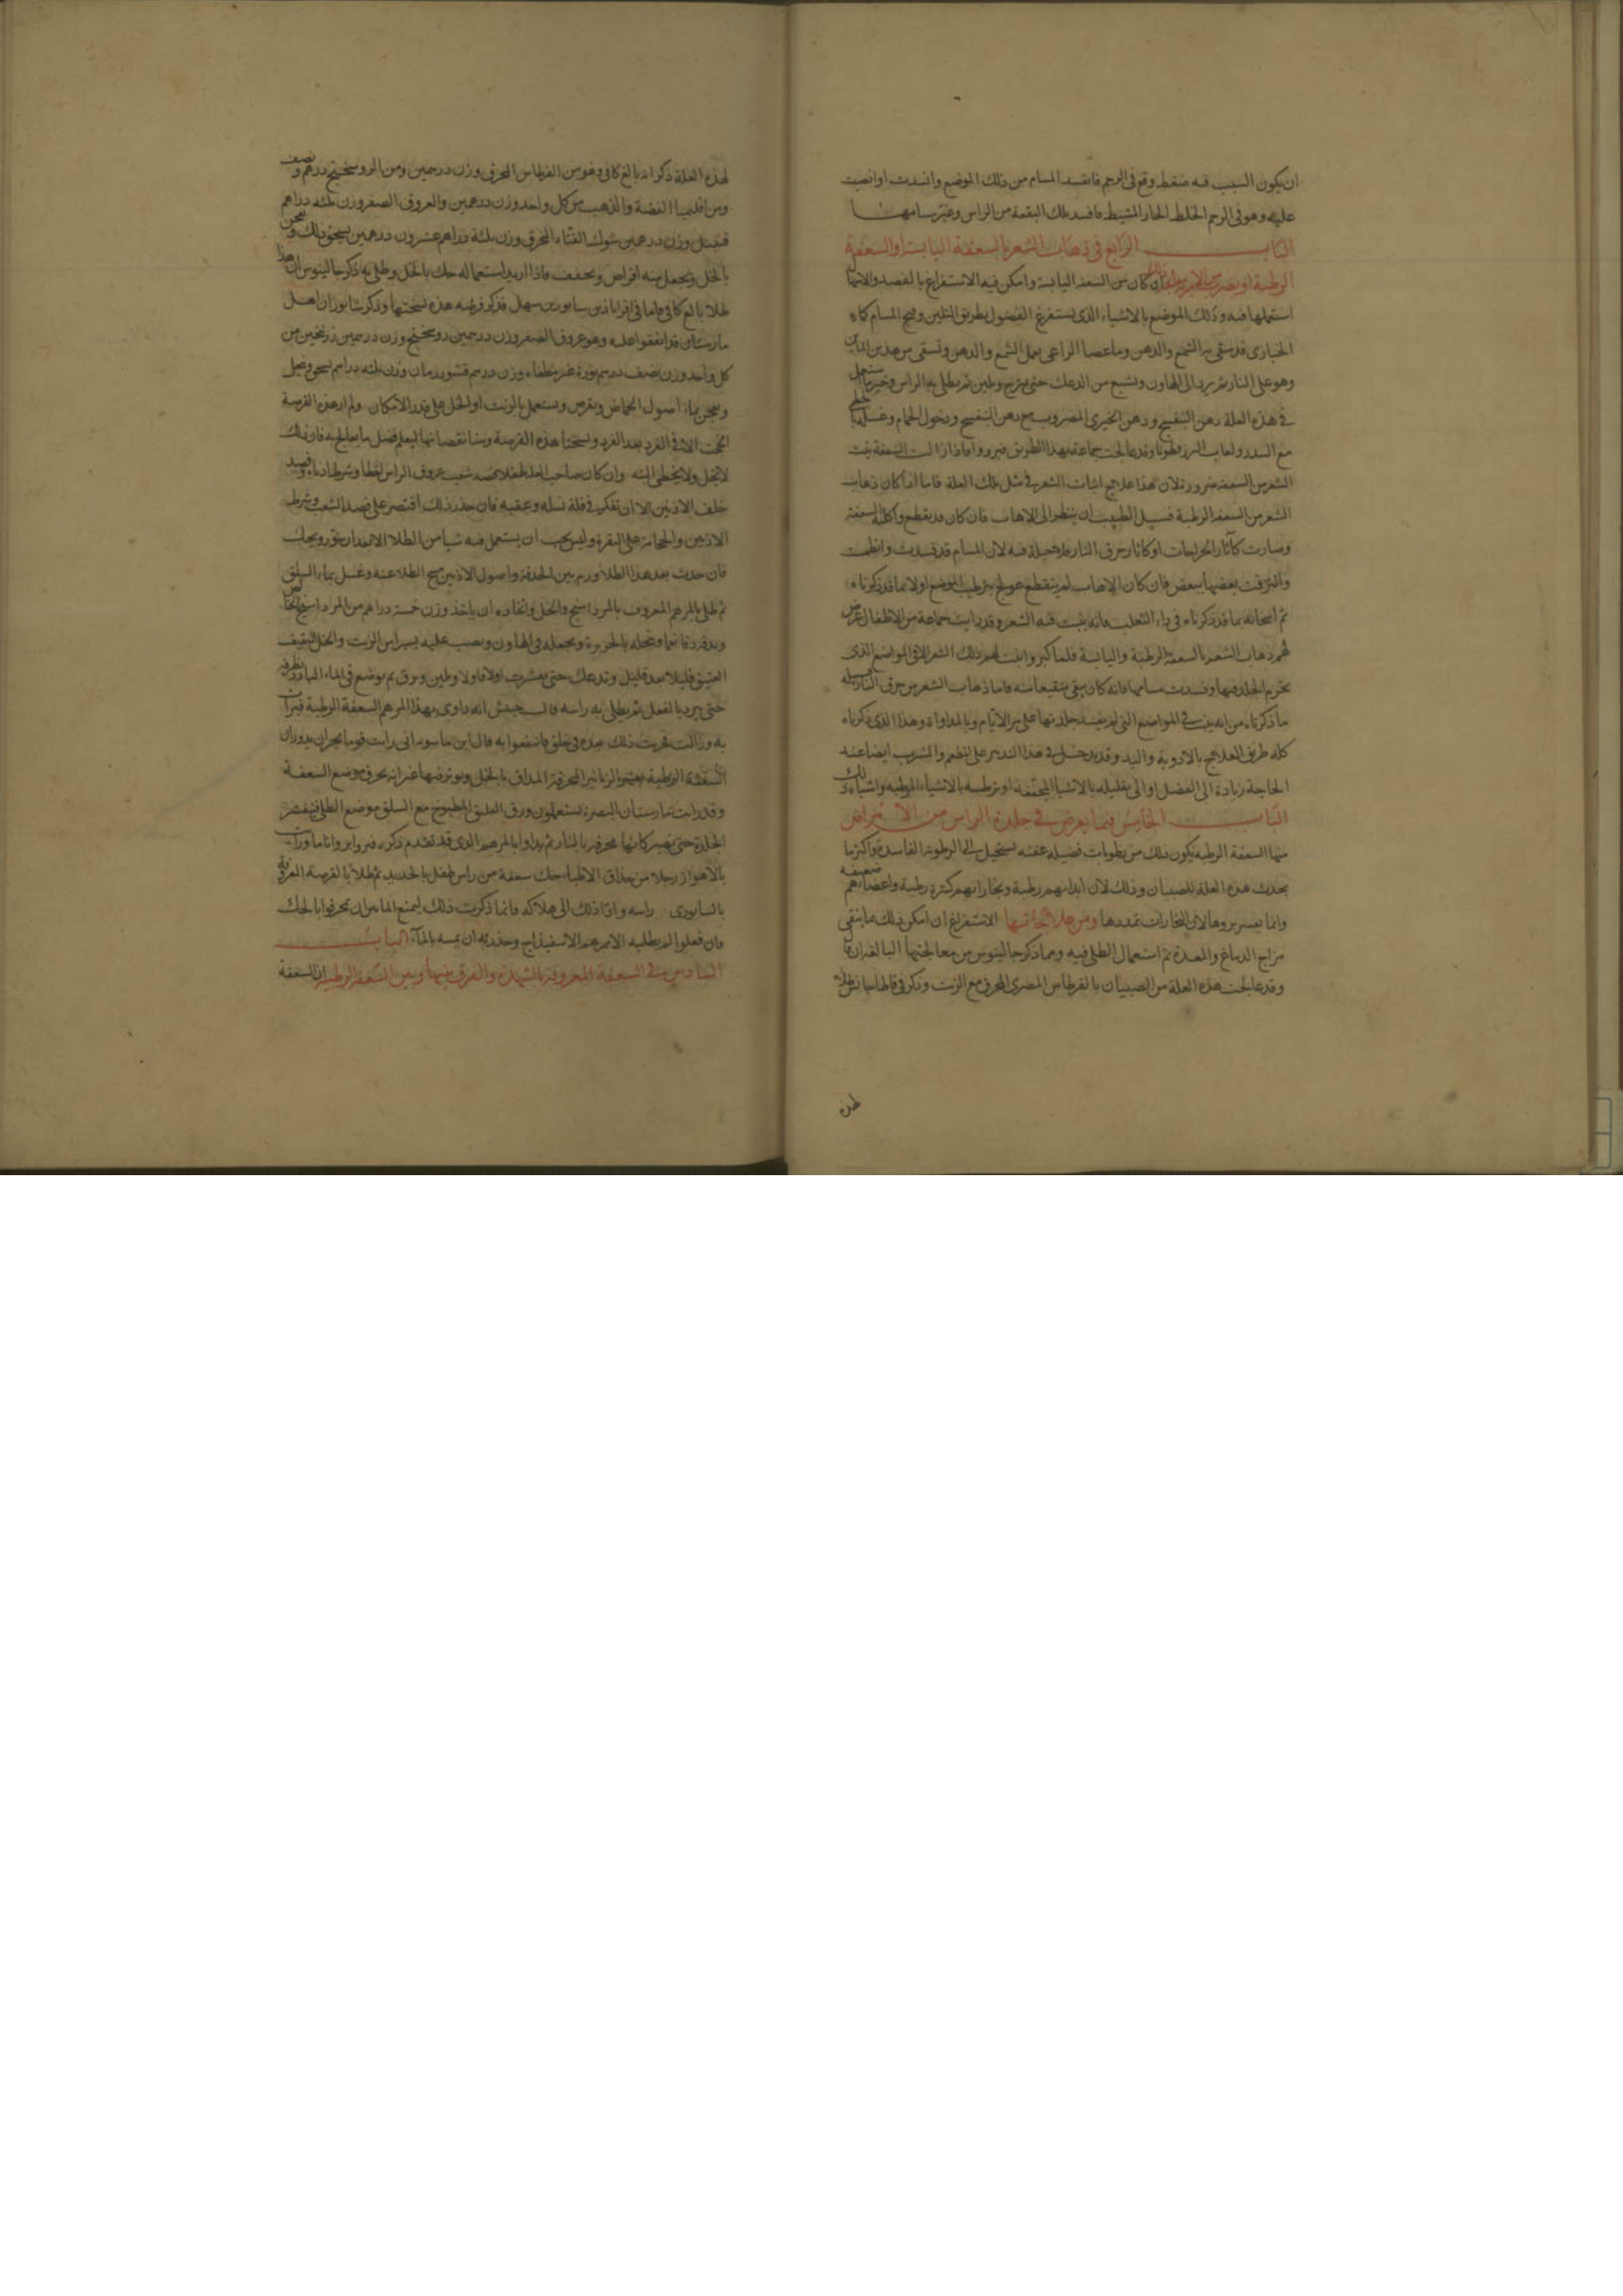 ان يكون السبب فيه ضغط وقع في الرحم فانسد المسام من ذلك الموضع وانسدت او انصبت
عليه وهو في الرحم الخلط الحار المشيط فافسد تلك البقعة من الراس وغير مسامها
الباب الرابع في ذهاب الشعر بالسعفة اليابسة او السعفة
الرطبة او ان كان من السعفة اليابسة وامكن فيه الاستفراغ بالفصد والاسهال
استعملها فيه وذلك الموضع بالاشياء الذي يستفرغ الفضول بطريق التليين وفتح المسام كماء
الخبازى قد سقى به الشمع والدهن وماء عصا الراعى يعمل الشمع والدهن وتسقى من هذين المائين
وهو على النار ثم يبرد الى الهاون ويشبع من الدعك حتى يمتزج ويلين ثم يطلى به الراس وخير ما يستعمل
في هذه العلة دهن البنفسج ودهن الخيرى المضروب مع دهن البنفسج ودخول الحمام وغسله
مع السدر ولعاب البزرقطونا وقد عالجت جماعة بهذا الطريق فبروا فاذا زالت السعفة ينبت
الشعر من السعفة ضرورة لان هذا علاج انبات الشعر في مثل تلك العلة فاما اذا كان ذهاب
الشعر من السعفة الرطبة فسبيل الطبيب ان ينظر الى الاهاب فان كان قد يقطع واكلته السعفة
وصارت كآثار الجراحات او كآثار حرق النار فلا حيلة فيه لان المسام قد فسدت وانطمست
والتزقت بعضها ببعض فان كان الاهاب لم يتقطع عولج بترطيب الموضع اولا بما قد ذكرناه
ثم اسخانه بما قد ذكرناه في داء الثعلب فانه ينبت فيه الشعر وقد رايت جماعة من الاطفال عرض
لهم ذهاب الشعر بالسعفة الرطبة واليابسة فلما كبروا نبت لهم ذلك الشعر الا في المواضع الذي
تخرم الجلد فيها وفسدت مسامها فانه كان يبقى فاما ذهاب الشعر من حرق النار
ما ذكرناه من انه ينبت في المواضع التي لم يفسد جلدتها على مر الايام وبالمداواة وهذا الذى ذكرناه
كله طريق العلاج بالادوية واليد وقد يدخل في هذا التدبير على المطعم والمشرب ايضا عند
الحاجة زيادة الى الفضل او الى تقليله بالاشياء المجففة او ترطيبه بالاشياء المرطبة واشباه ذلك
الباب الخامس فيما يعرض في جلدة الراس من الامراض
منها السعفة الرطبة يكون ذلك من رطوبات فضيلة عفنة يستحيل الى الرطوبة الفاسدة واكثر ما
يحدث هذه العلة للصبيان وذلك لان ابدانهم رطبة وبخاراتهم كثيرة رطبة واعضائهم ضعيفة
وانما يعسر بروها لان البخارات تمددها ومن علاجاتها الاستفراغ ان امكن ذلك بما ينقى
مزاج الدماغ والمعدة ثم استعمال الطلى فيه ومما ذكر جالينوس من معالجتها البالغة ان قال
وقد عالجت هذه العلة من الصبيان بالقرطاس المصرى المحرق مع الزيت وذكر في قاطاجانس طلاء
لهذه
لهذه العلة ذكر انه بالغ كافي وهو من القرطاس المحرق وزن درهمين ومن الروسختج درهم ونصف
ومن اقليميا الفضة والذهب من كل واحد وزن درهمين والعروق الصفر وزن ثلثة دراهم
وزن درهمين شوك القثاء المحرق وزن ثلثة دراهم عشرون درهمين يسحق ذلك ويعجن
بالخل ويجعل منه اقراص ويجفف فاذا اريد استعماله حك بالخل وطلى به ذكر جالينوس ان هذا
طلاء بالغ كافي فاما في اقراباذين سابور بن سهل فذكر قرصة هذه نسختها وذكر سابور ان اهل
مارستان قد اتفقوا عليه وهو عروق الصفر وزن درهمين روسختج وزن درهمين زرنيخين من
كل واحد وزن نصف درهم نورة غير مطفاه وزن درهم قشور رمان وزن ثلثه دراهم يسحق وينخل
ويعجن بماء اصول الحماض ويقرص ويستعمل بالزيت او الخل على قدر الامكان ولم ار هذه القرصة
انجحت الا في الفرد بعد الفرد ونسختنا هذه القرصة وبينا نقصانها ليعلم فضل ما يعالج به فان ذلك
لا يخل ولا يخطى البتة وان كان صاحب العلة طفلا شعب عروف الراس لقطا وشرطا وفصد
خلف الاذنين الا ان تفكر في قلة نسله وعقبه فان حذر ذلك اقتصر على فصد الشعب وشرط
الاذنين والحجامة على النقرة وليس يجب ان يستعمل فيه شيا من الطلا الا بعد ان ينور ويحك
فان حدث بعد هذا الطلاء ورم بين الحدقة واصول الاذنين مسح الطلا عنه وغسل بماء السلق
ثم طلى بالمرهم المعروف بالمرداسنج والخل واتخاذه ان ياخذ وزن خمسة دراهم من المرداسنج الخالص
ويدقه دقا نعما وينخله بالحريرة ويجعله في الهاون ويصب عليه يسيرا من الزيت والخل الثقيف
العتيق قليلا بعد قليل ويدعك حتى يتشرب اولا فاولا ويلين ويرق ثم يوضع في الماء البارد
حتى يبرد بالفعل ثم يطلى به راسه قال حبيش انه داوى بهذا المرهم السعفة الرطبة فبرات
به وزالت فجربت ذلك بعده في خلق فانتفعوا به قال ابن ماسويه انى رايت قوما بحران يداوون
السعفة الرطبة المحرقة المداق بالخل ويوترفيها غير انه يحرق موضع السعفة
وقد رايت بمارستان البصرة يستعملون ورق العليق المطبوخ مع السلق موضع الطلى فيقشر
الجلدة حتى يصير كانها محرقة بالنار ثم يداوا بالمرهم الذى قد تقدم ذكره فبروا واناما ورايت
بالاهواز رجلا من حذاق الاطباء حك سعفة من راس طفل بالحديد ثم طلاه بالقرصة المعروفة
بالسابورى راسه واذا ذلك الى هلاكه فانما ذكرت ذلك ليمنع الناس ان يحرقوا بالحك
فان فعلوا لم يطليه الا بمرهم الاسفيذاج وحذر به ان يمسه بالماء الباب
السادس في السعفة المعروفة بالشهدة والفرق بينها وبين السعفة الرطبة ان السعفة